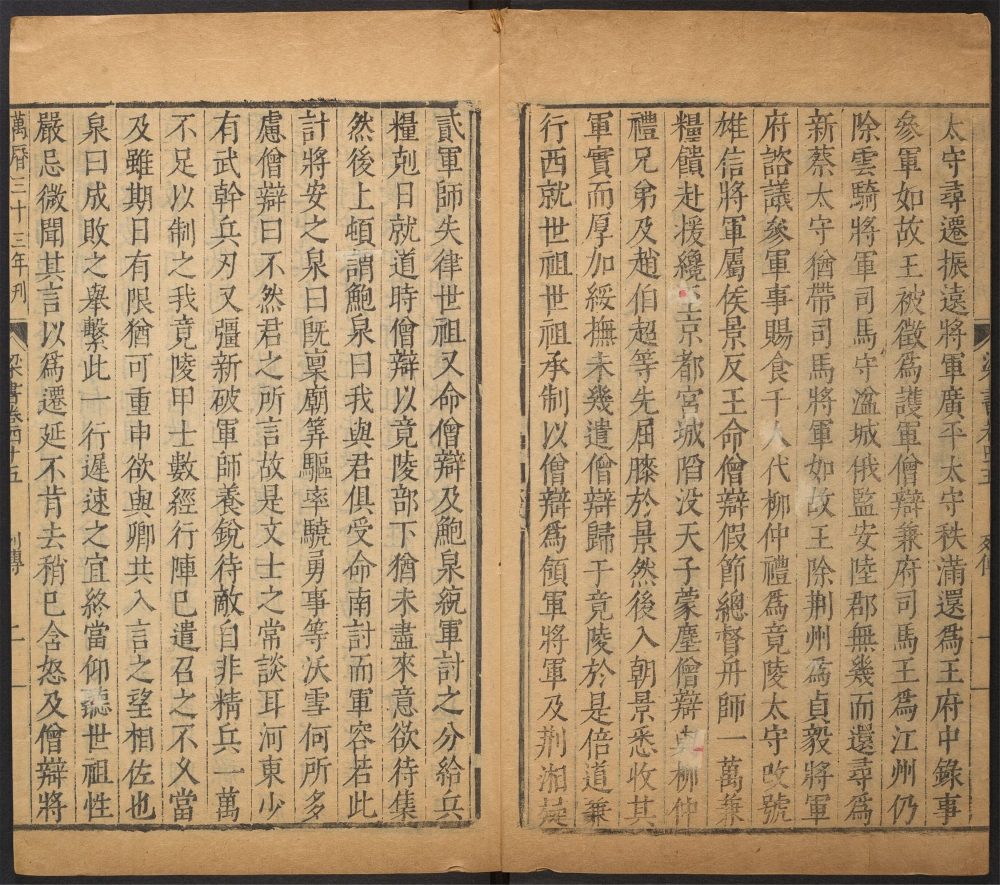 太守尋遷振遠將軍廣平太守秩滿還爲王府中錄事
叅軍如故王被徵爲護軍僧辯兼府司馬王爲江州仍
除雲騎將軍司馬守湓城俄監安陸郡無幾而還尋爲
新蔡太守猶帶司馬將軍如故王除荆州爲貞毅將軍
府諮議叅軍事賜食千人代柳仲禮爲竟陵太守改號
雄信將軍屬侯景反王命僧辯假節總督舟師一萬兼
糧饋赴援纔至京都宮城陷没天子蒙塵僧辯與柳仲
禮兄弟及趙伯超等先屈膝於景然後入朝景悉收其
軍實而厚加綏撫未幾遣僧辯歸于竟陵於是倍道兼
行西就世祖世祖承制以僧辯爲領軍將軍及荆湘疑
貳軍師失律世祖又命僧辯及鮑泉統軍討之分給兵
糧剋日就道時僧辯以竟陵部下猶未盡來意欲待集
然後上頓謂鮑泉曰我與君俱受命南討而軍容若此
計將安之泉曰既稟廟筭驅率驍勇事等沃雪何所多
慮僧辯曰不然君之所言故是文士之常談耳河東少
有武幹兵刃又彊新破軍師養銳待敵自非精兵一萬
不足以制之我竟陵甲士數經行陣巳遣召之不乆當
及雖期日有限猶可重申欲與卿共入言之望相佐也
泉曰成敗之舉繫此一行遲速之宜終當仰聽世祖性
嚴忌微聞其言以爲遷延不肯去稍巳含怒及僧辯將
萬曆三十三年刋
梁書卷四十五
列傳
二